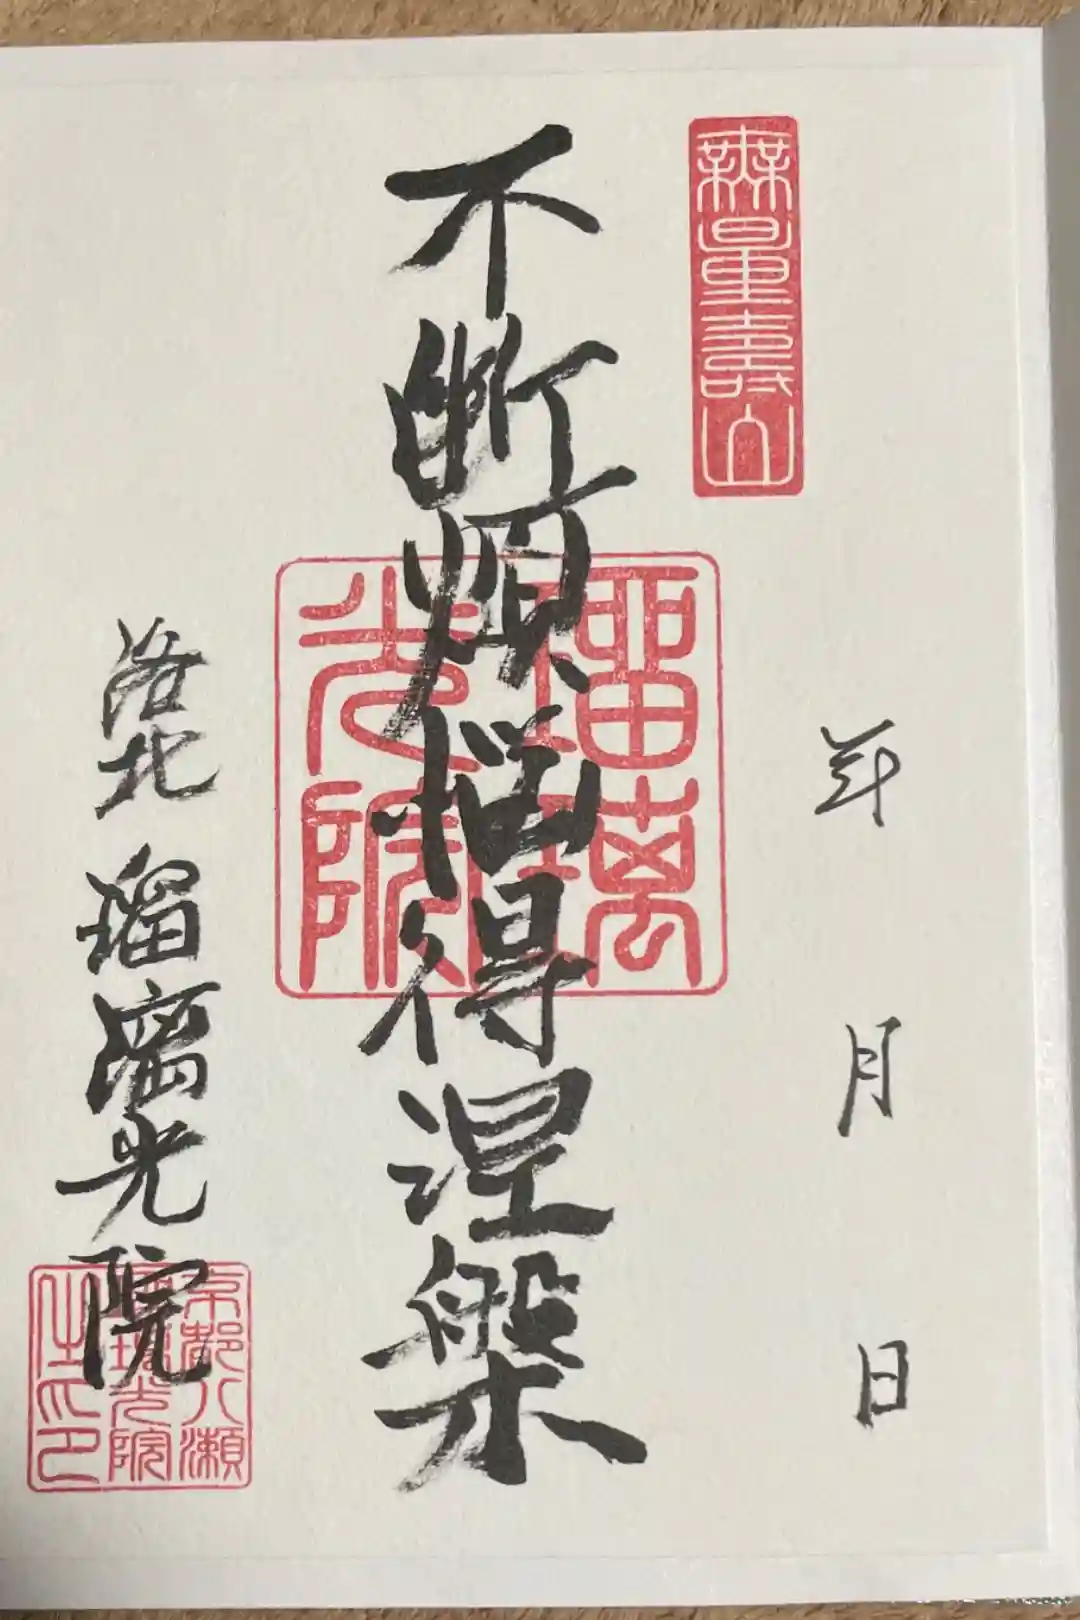 無量壽山
年 月 日
不断煩悩得涅槃
瑠璃光院
洛北 瑠璃光院
京都八瀬瑠璃光院之印